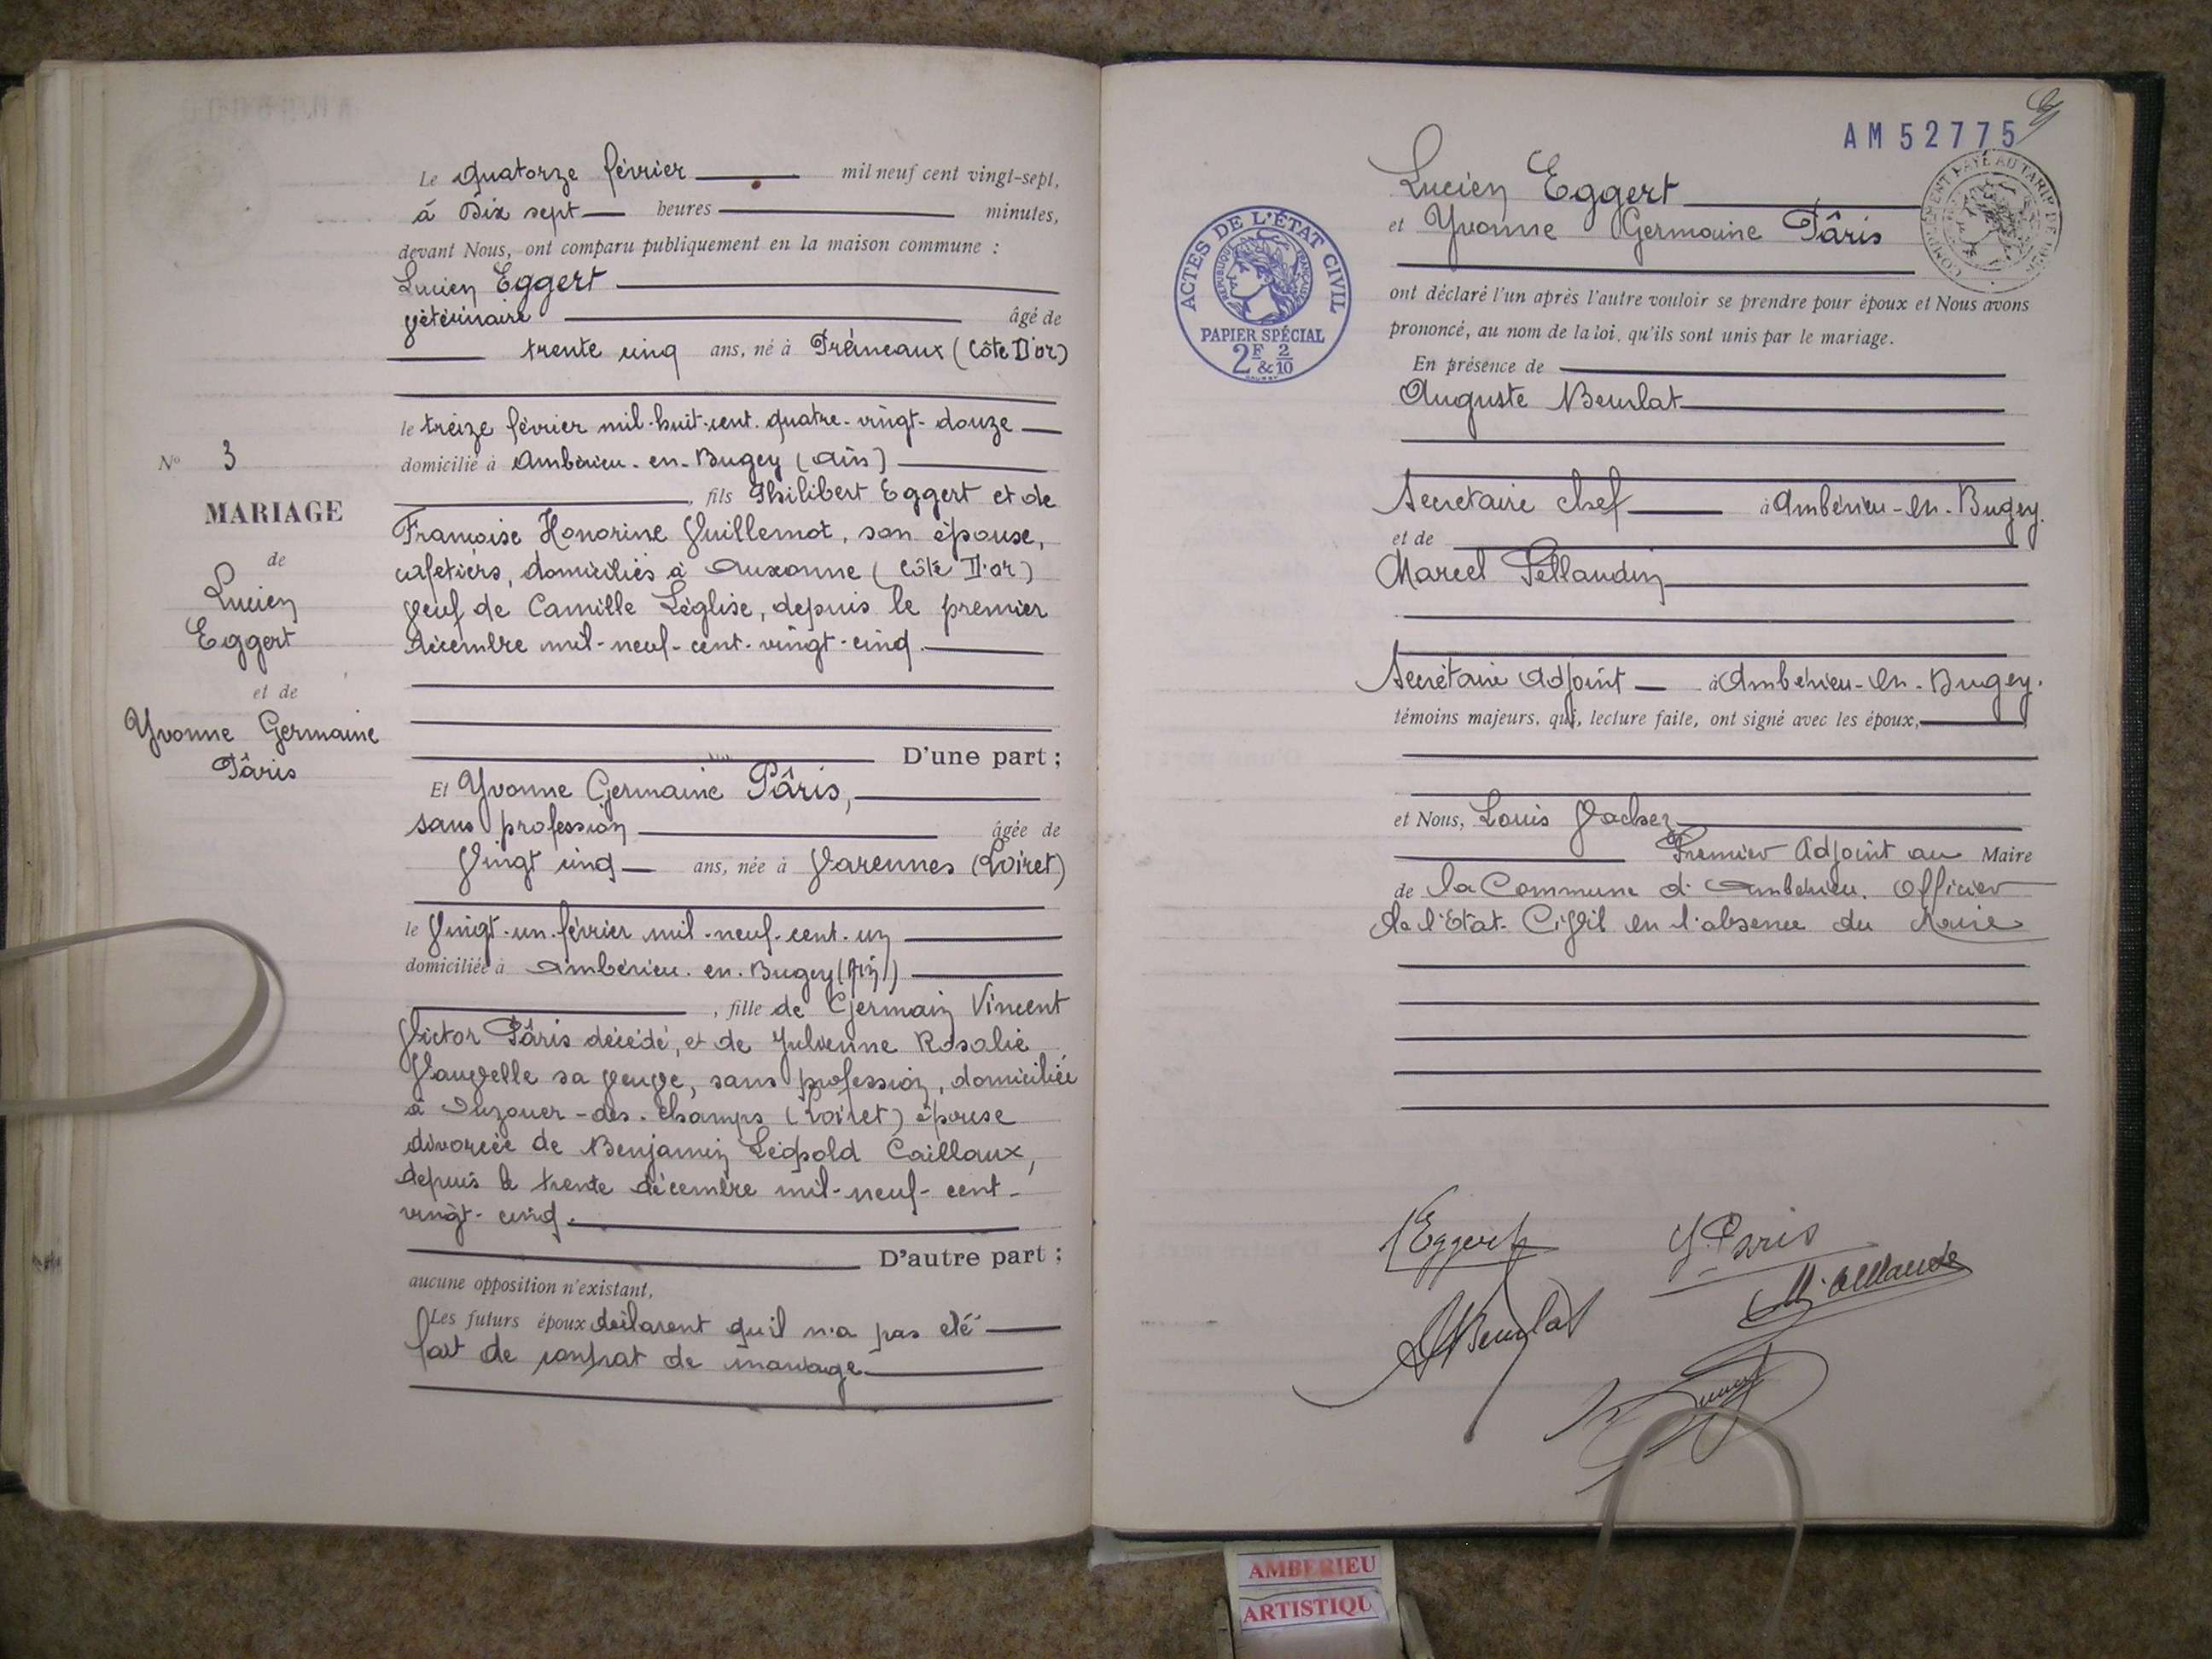 Le quatorze février mil neuf cent vingt-sept,
à Dix sept heures minutes,
devant Nous, ont comparu publiquement en la maison commune :
Lucien Eggert
vétérinaire âgé de
trente cinq ans, né à (Côte D'or)
le treize février mil-huit-cent-quatre-vingt-douze
domicilié à Ambérieu-en-Bugey (Ain)
, fils Philibert Eggert et de
Françoise Honorine Vuillemot, son épouse,
cafetiers, domiciliés à Auxonne (Côte D'or)
veuf de Camille Léglise, depuis le premier
décembre mil-neuf-cent-vingt-cinq.
D'une part ;
Et Yvonne Germaine Pâris,
sans profession âgée de
Vingt cinq ans, née à Varennes (Loiret)
le Vingt-un-février mil-neuf-cent-un
domiciliée à Ambérieu-en-Bugey (Ain)
, fille de Germain Vincent
Victor Pâris décédé, et de Julienne Rosalie
Vauvelle sa veuve, sans profession, domiciliée
à Ouzouer-des-Champs (Loiret) épouse
divorcée de Benjamin Léopold Caillaux,
depuis le trente décembre mil-neuf-cent-
vingt-cinq.
D'autre part ;
aucune opposition n'existant,
Les futurs époux déclarent qu'il n'a pas été
fait de contrat de mariage.
N° 3
MARIAGE
de
Lucien
Eggert
et de
Yvonne Germaine
Pâris
AM 52775
Lucien Eggert
et Yvonne Germaine Pâris
COMPLEMENT PAYÉ AU TARIF DE
ACTES DE L'ÉTAT CIVIL
REPUBLIQUE FRANÇAISE
PAPIER SPÉCIAL
2F & 2/10
ont déclaré l'un après l'autre vouloir se prendre pour époux et Nous avons
prononcé, au nom de la loi, qu'ils sont unis par le mariage.
En présence de
Auguste Beurlat
Secrétaire chef à Ambérieu-en-Bugey.
et de
Marcel Pellaudin
Secrétaire Adjoint à Ambérieu-en-Bugey.
témoins majeurs, qui, lecture faite, ont signé avec les époux,
et Nous, Louis Vachez
Premier Adjoint au Maire
de la Commune d'Ambérieu. Officier
de l'Etat-Civil en l'absence du Maire
Eggert
Y. Paris
Beurlat
AMBERIEU
ARTISTIQU